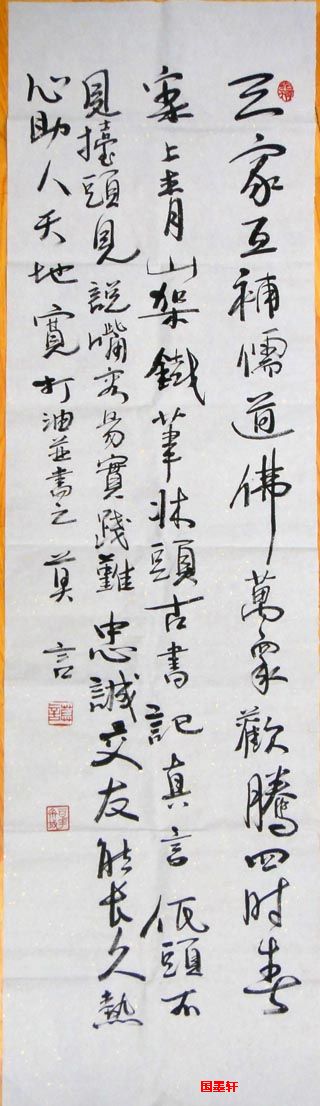 三家互補儒道佛萬眾歡騰四时春
案上青山架鐵筆牀頭古書記真言低頭不
見擡頭見說嘴容易實踐難忠誠交友能长久熱
心助人天地寬打油並書之莫言
国墨轩